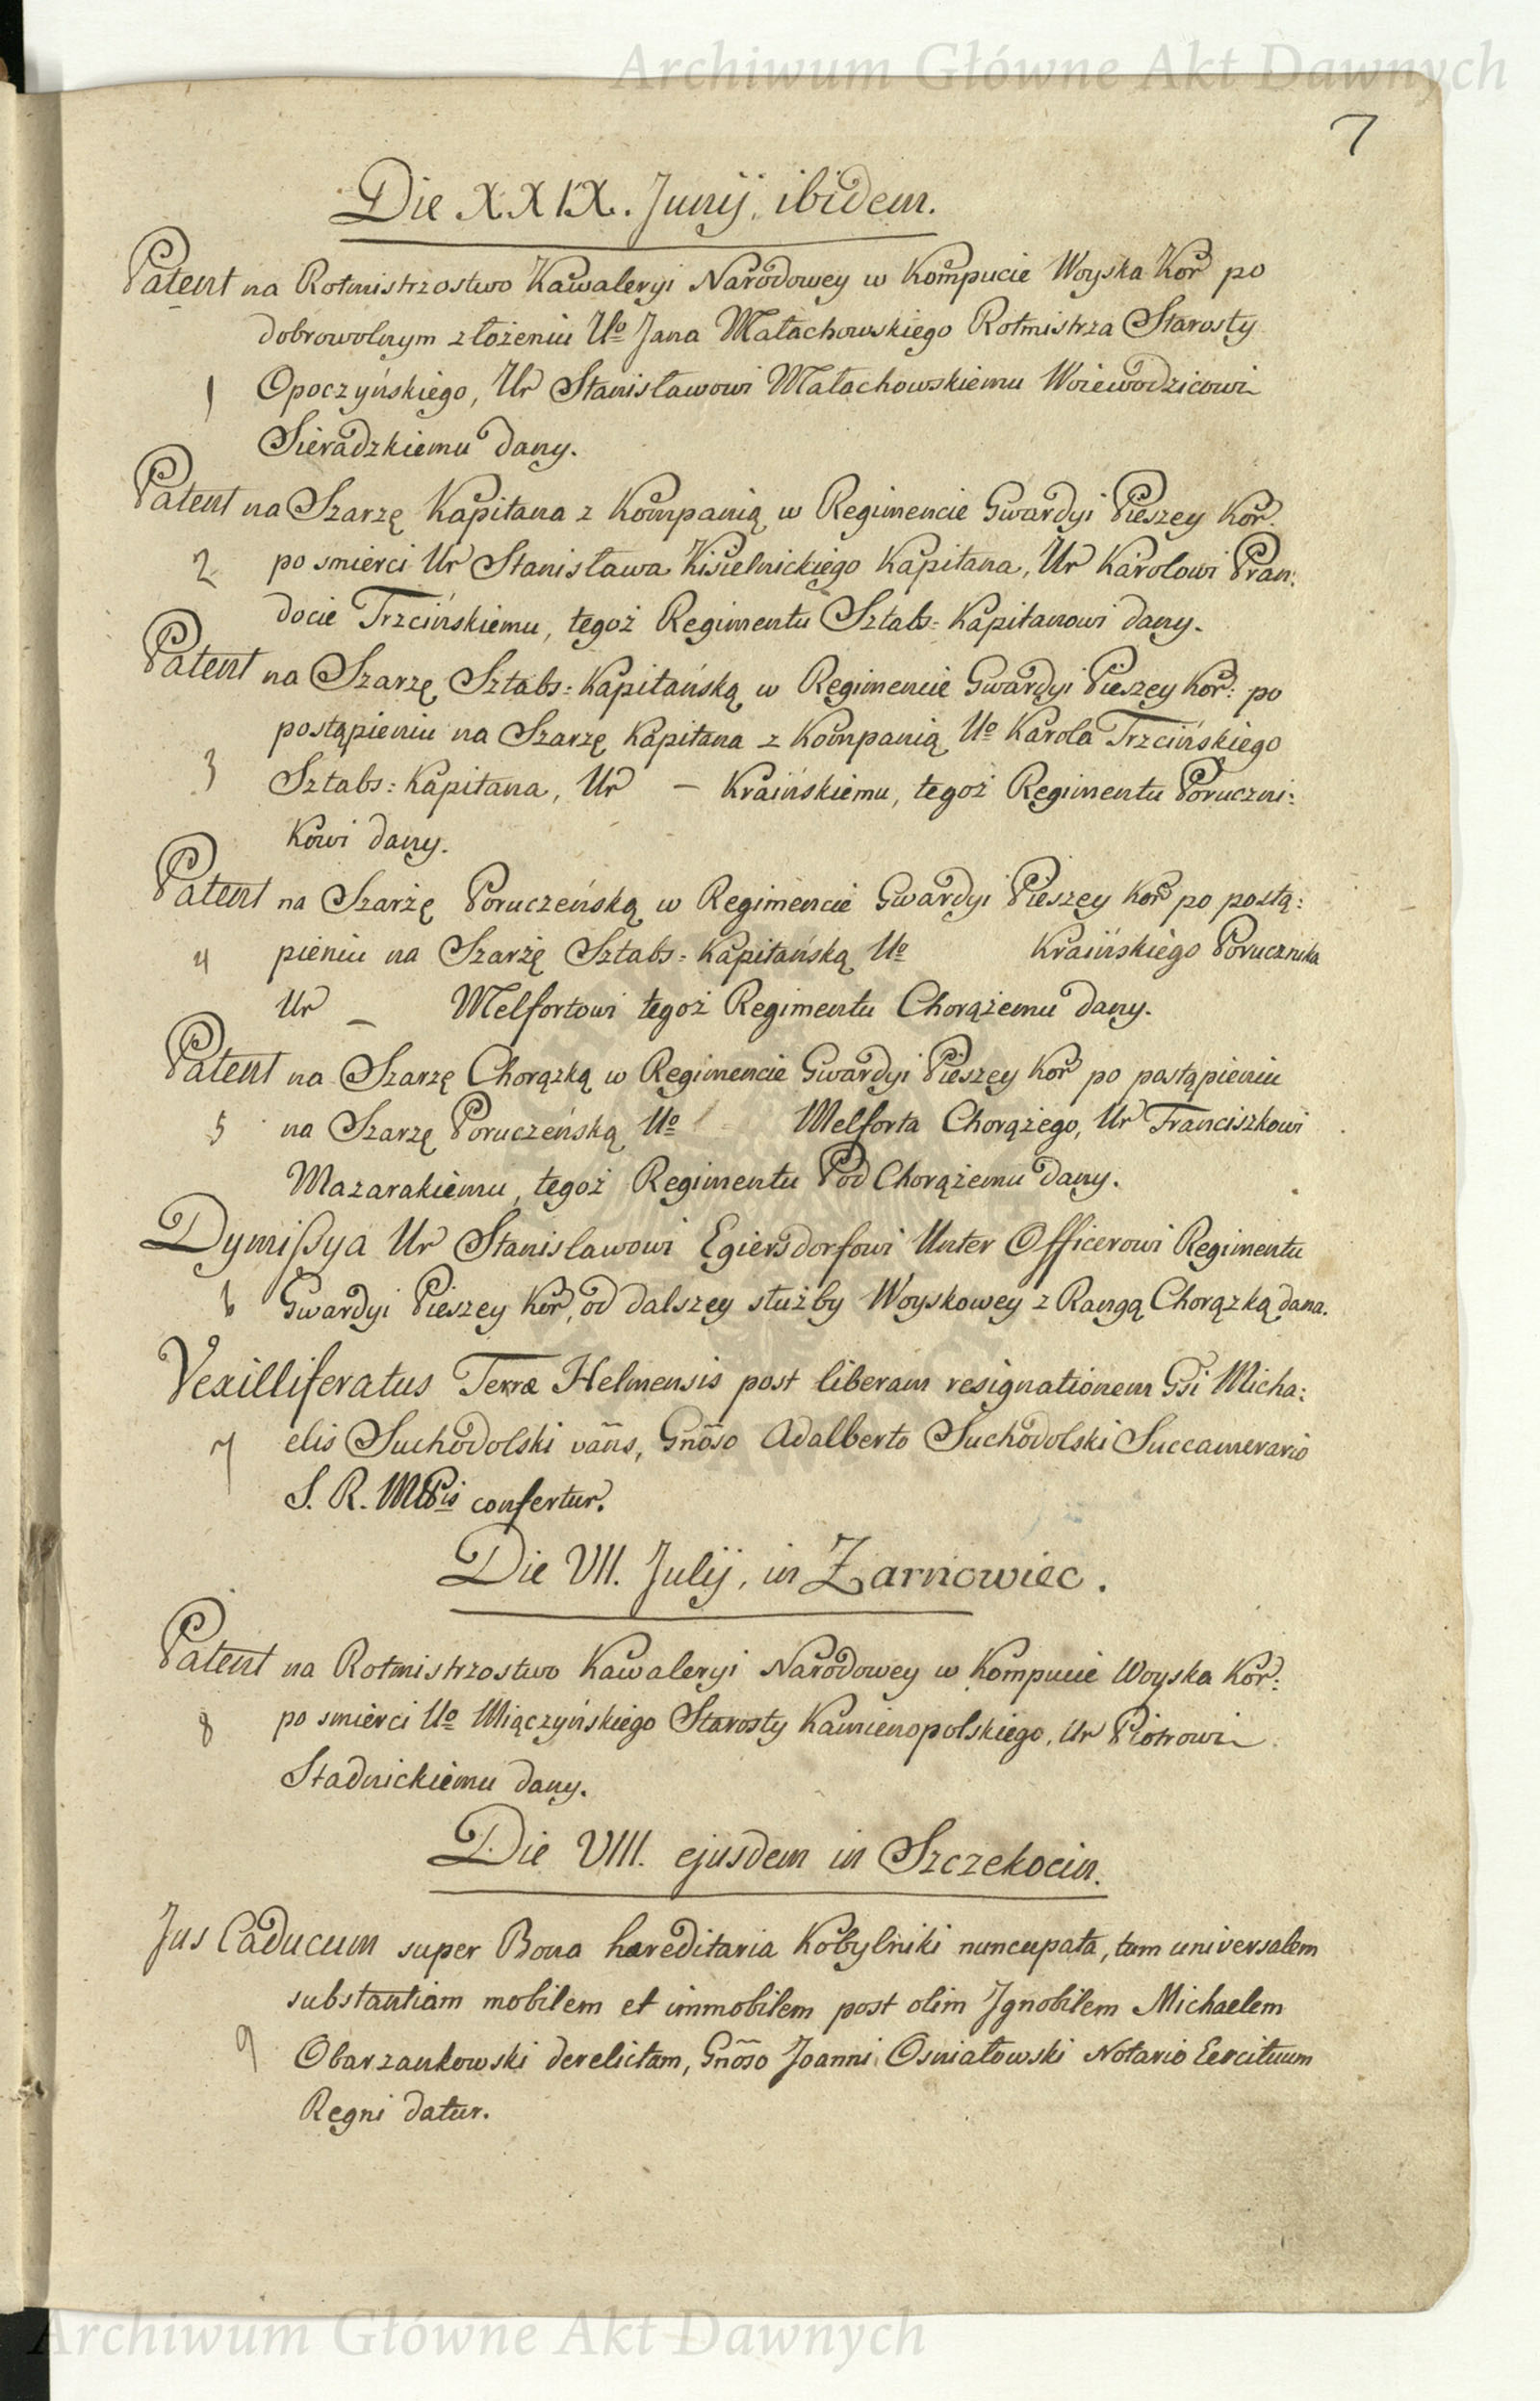 Archiwum Główne Akt Dawnych
7
Die XXIX. Junij, ibidem.
Patent na Rotmistrzostwo Kawaleryi Narodowey w Kompucie Woyska Kor po
dobrowolnym złożeniu Uo Jana Małachowskiego Rotmistrza Starosty
1 Opoczyńskiego, Ur Stanisławowi Małachowskiemu Woiewodzicowi
Sieradzkiemu dany.
Patent na Szarzę Kapitana z Kompanią w Regimencie Gwardyi Pieszey Kor:
2 po smierci Ur Stanisława Kisielnickiego Kapitana, Ur Karolowi Pran:
docie Trzcińskiemu, tegoż Regimentu Sztabs: Kapitanowi dany.
Patent na Szarzę Sztabs: Kapitańską w Regimencie Gwardyi Pieszey Kor: po
postąpieniu na Szarzę Kapitana z Kompanią Uo Karola Trzcińskiego
3 Sztabs: Kapitana, Ur — Kraińskiemu, tegoż Regimentu Poruczni:
kowi dany.
Patent na Szarżę Poruczeńską w Regimencie Gwardyi Pieszey Kor po postą:
4 pieniu na Szarżę Sztabs: Kapitańską Uo Kraińskiego Porucznika
Ur — Melfortowi tegoż Regimentu Chorążemu dany.
Patent na Szarzę Chorązką w Regimencie Gwardyi Pieszey Kor po postąpieniu
5 na Szarzę Poruczeńską Uo Melforta Chorążego, Ur Franciszkowi
Mazarakiemu, tegoż Regimentu Pod Chorążemu dany.
Dymißya Ur Stanisławowi Egiersdorfowi Unter Officerowi Regimentu
6 Gwardyi Pieszey Kor, od dalszey służby Woyskowey z Rangą Chorązką dana.
Vexilliferatus Terræ Helmensis post liberam resignationem Gsi Micha:
7 elis Suchodolski vañs, Gñoso Adalberto Suchodolski Succamerario
S. R. Mttis confertur.
Die VII. Julij, in Zarnowiec.
Patent na Rotmistrzostwo Kawaleryi Narodowey w Kompucie Woyska Kor:
8 po smierci Uo Miączyńskiego Starosty Kamienopolskiego, Ur Piotrowi
Stadnickiemu dany.
Die VIII. ejusdem in Szczekocin.
Jus Caducum super Bona hæreditaria Kobylniki nuncupata, tam universalem
substantiam mobilem et immobilem post olim Jgnobilem Michaelem
9 Obarzankowski derelictam, Gñoso Joanni Osniałowski Notario Eercituum
Regni datur.
Archiwum Główne Akt Dawnych